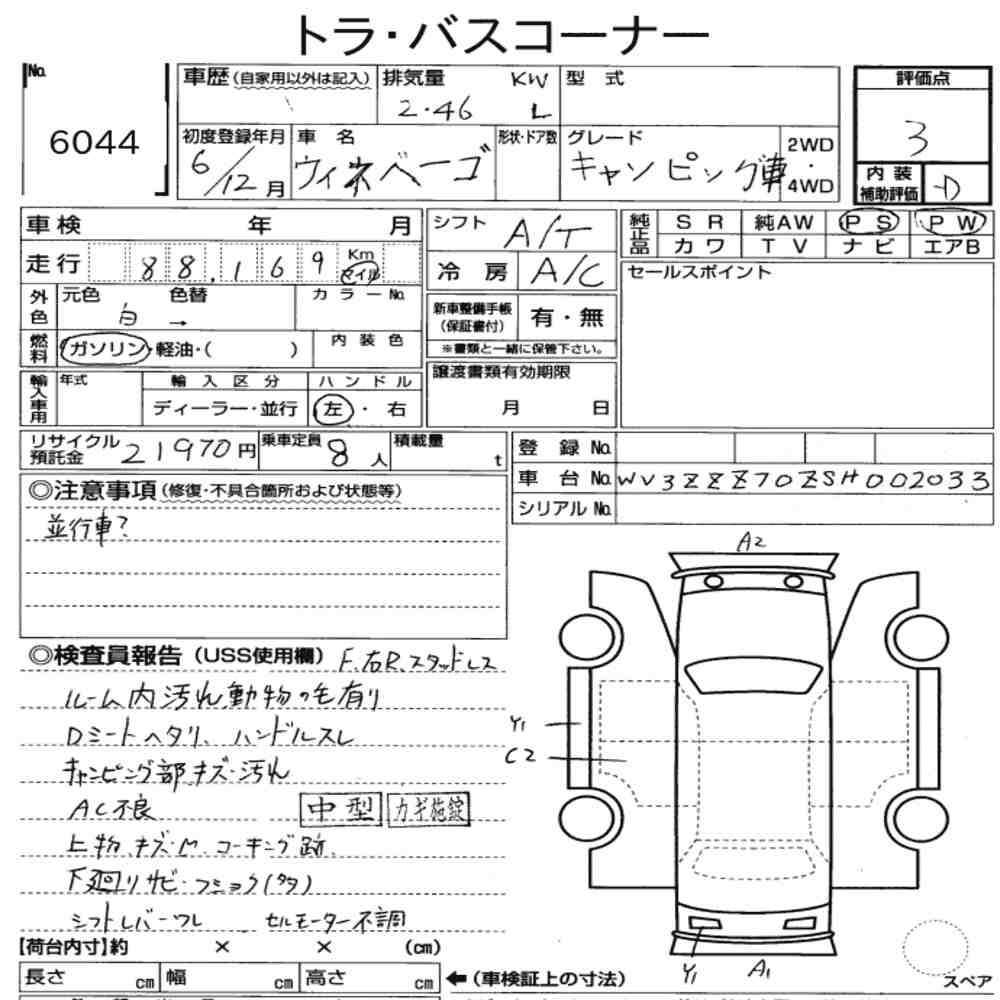 トラ・バスコーナー
No.
6044
車歴(自家用以外は記入)
排気量 KW
2.46 L
型式
評価点
3
内装
補助評価
D
初度登録年月
6/12月
車名
ウィネベーゴ
形状・ドア数
グレード
キャンピング車
2WD
・
4WD
車検 年 月
走行 88,169 Km
マイル
外色 元色 色替 カラーNo.
白 →
燃料 ガソリン・軽油・( ) 内装色
輸入車用 年式 輸入区分 ハンドル
ディーラー・並行 左・右
シフト A/T
冷房 A/C
新車整備手帳
(保証書付) 有・無
※書類と一緒に保管下さい。
譲渡書類有効期限
月 日
純正品 SR 純AW PS PW
カワ TV ナビ エアB
セールスポイント
リサイクル
預託金 21970円
乗車定員 8人
積載量 t
登録No.
車台No. WV3ZZZ70ZSH002033
シリアルNo.
◎注意事項(修復・不具合箇所および状態等)
並行車?
◎検査員報告(USS使用欄) F.右R.スタッドレス
ルーム内汚れ動物の毛有り
Dシートヘタリ、ハンドルスレ
キャンピング部キズ・汚れ
AC不良 中型 カギ施錠
上物キズ・コーキング跡
下廻りサビ・フショク(タタ)
シフトレバーワレ セルモーター不調
A2
Y1
C2
Y1
A1
スペア
【荷台内寸】約 × × (cm)
長さ cm 幅 cm 高さ cm ←(車検証上の寸法)